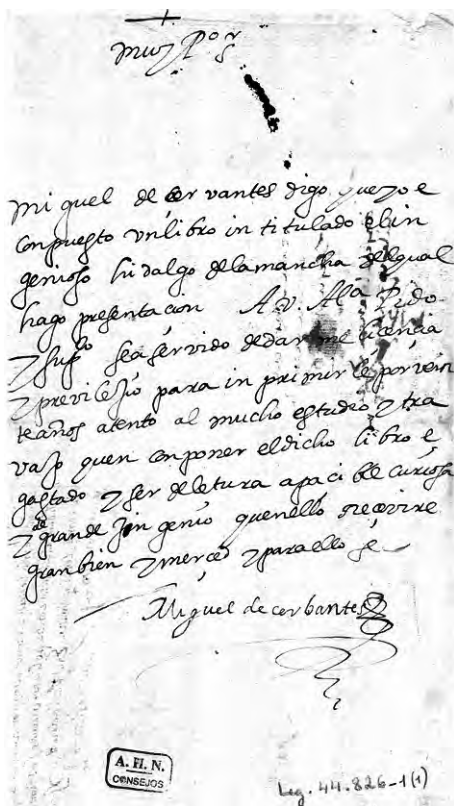 muy Pᵒ Sʳ
miguel de cervantes digo que yo e
conpuesto un libro in titulado el in
genioso hidalgo de la mancha del qual
hago presentacion A.v. Alᵃ Pido
y supᶜᵒ sea servido de dar me licencia
y previlejio para in primir le por vein
te años atento al mucho estudio y tra
vajo quen conponer el dicho libro e
gastado y ser de letura apaci ble curiosa
y de grande in genio quenello rrecevire
gran bien y merced y para ello &
Miguel de cerbantes
A. H. N.
CONSEJOS
Leg. 44.826-1(1)